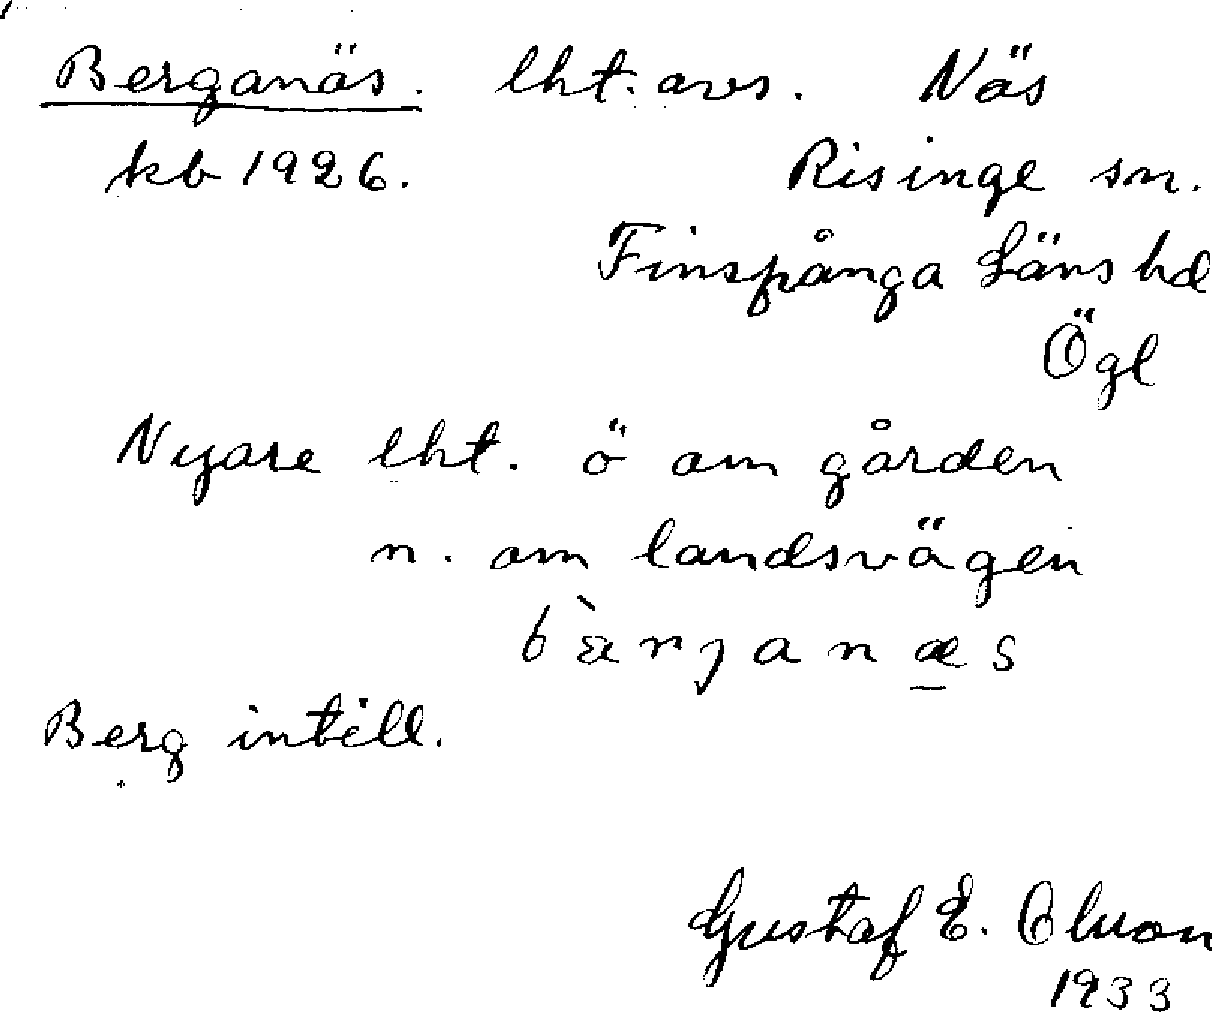 Berganäs. lht. avs. Näs
kb 1926. Risinge sn.
Finspånga Läns hd
Ögl
Nyare lht. ö om gården
n. om landsvägen
bæ̀rjanæs
Berg intill.
Gustaf E. Olsson
1933